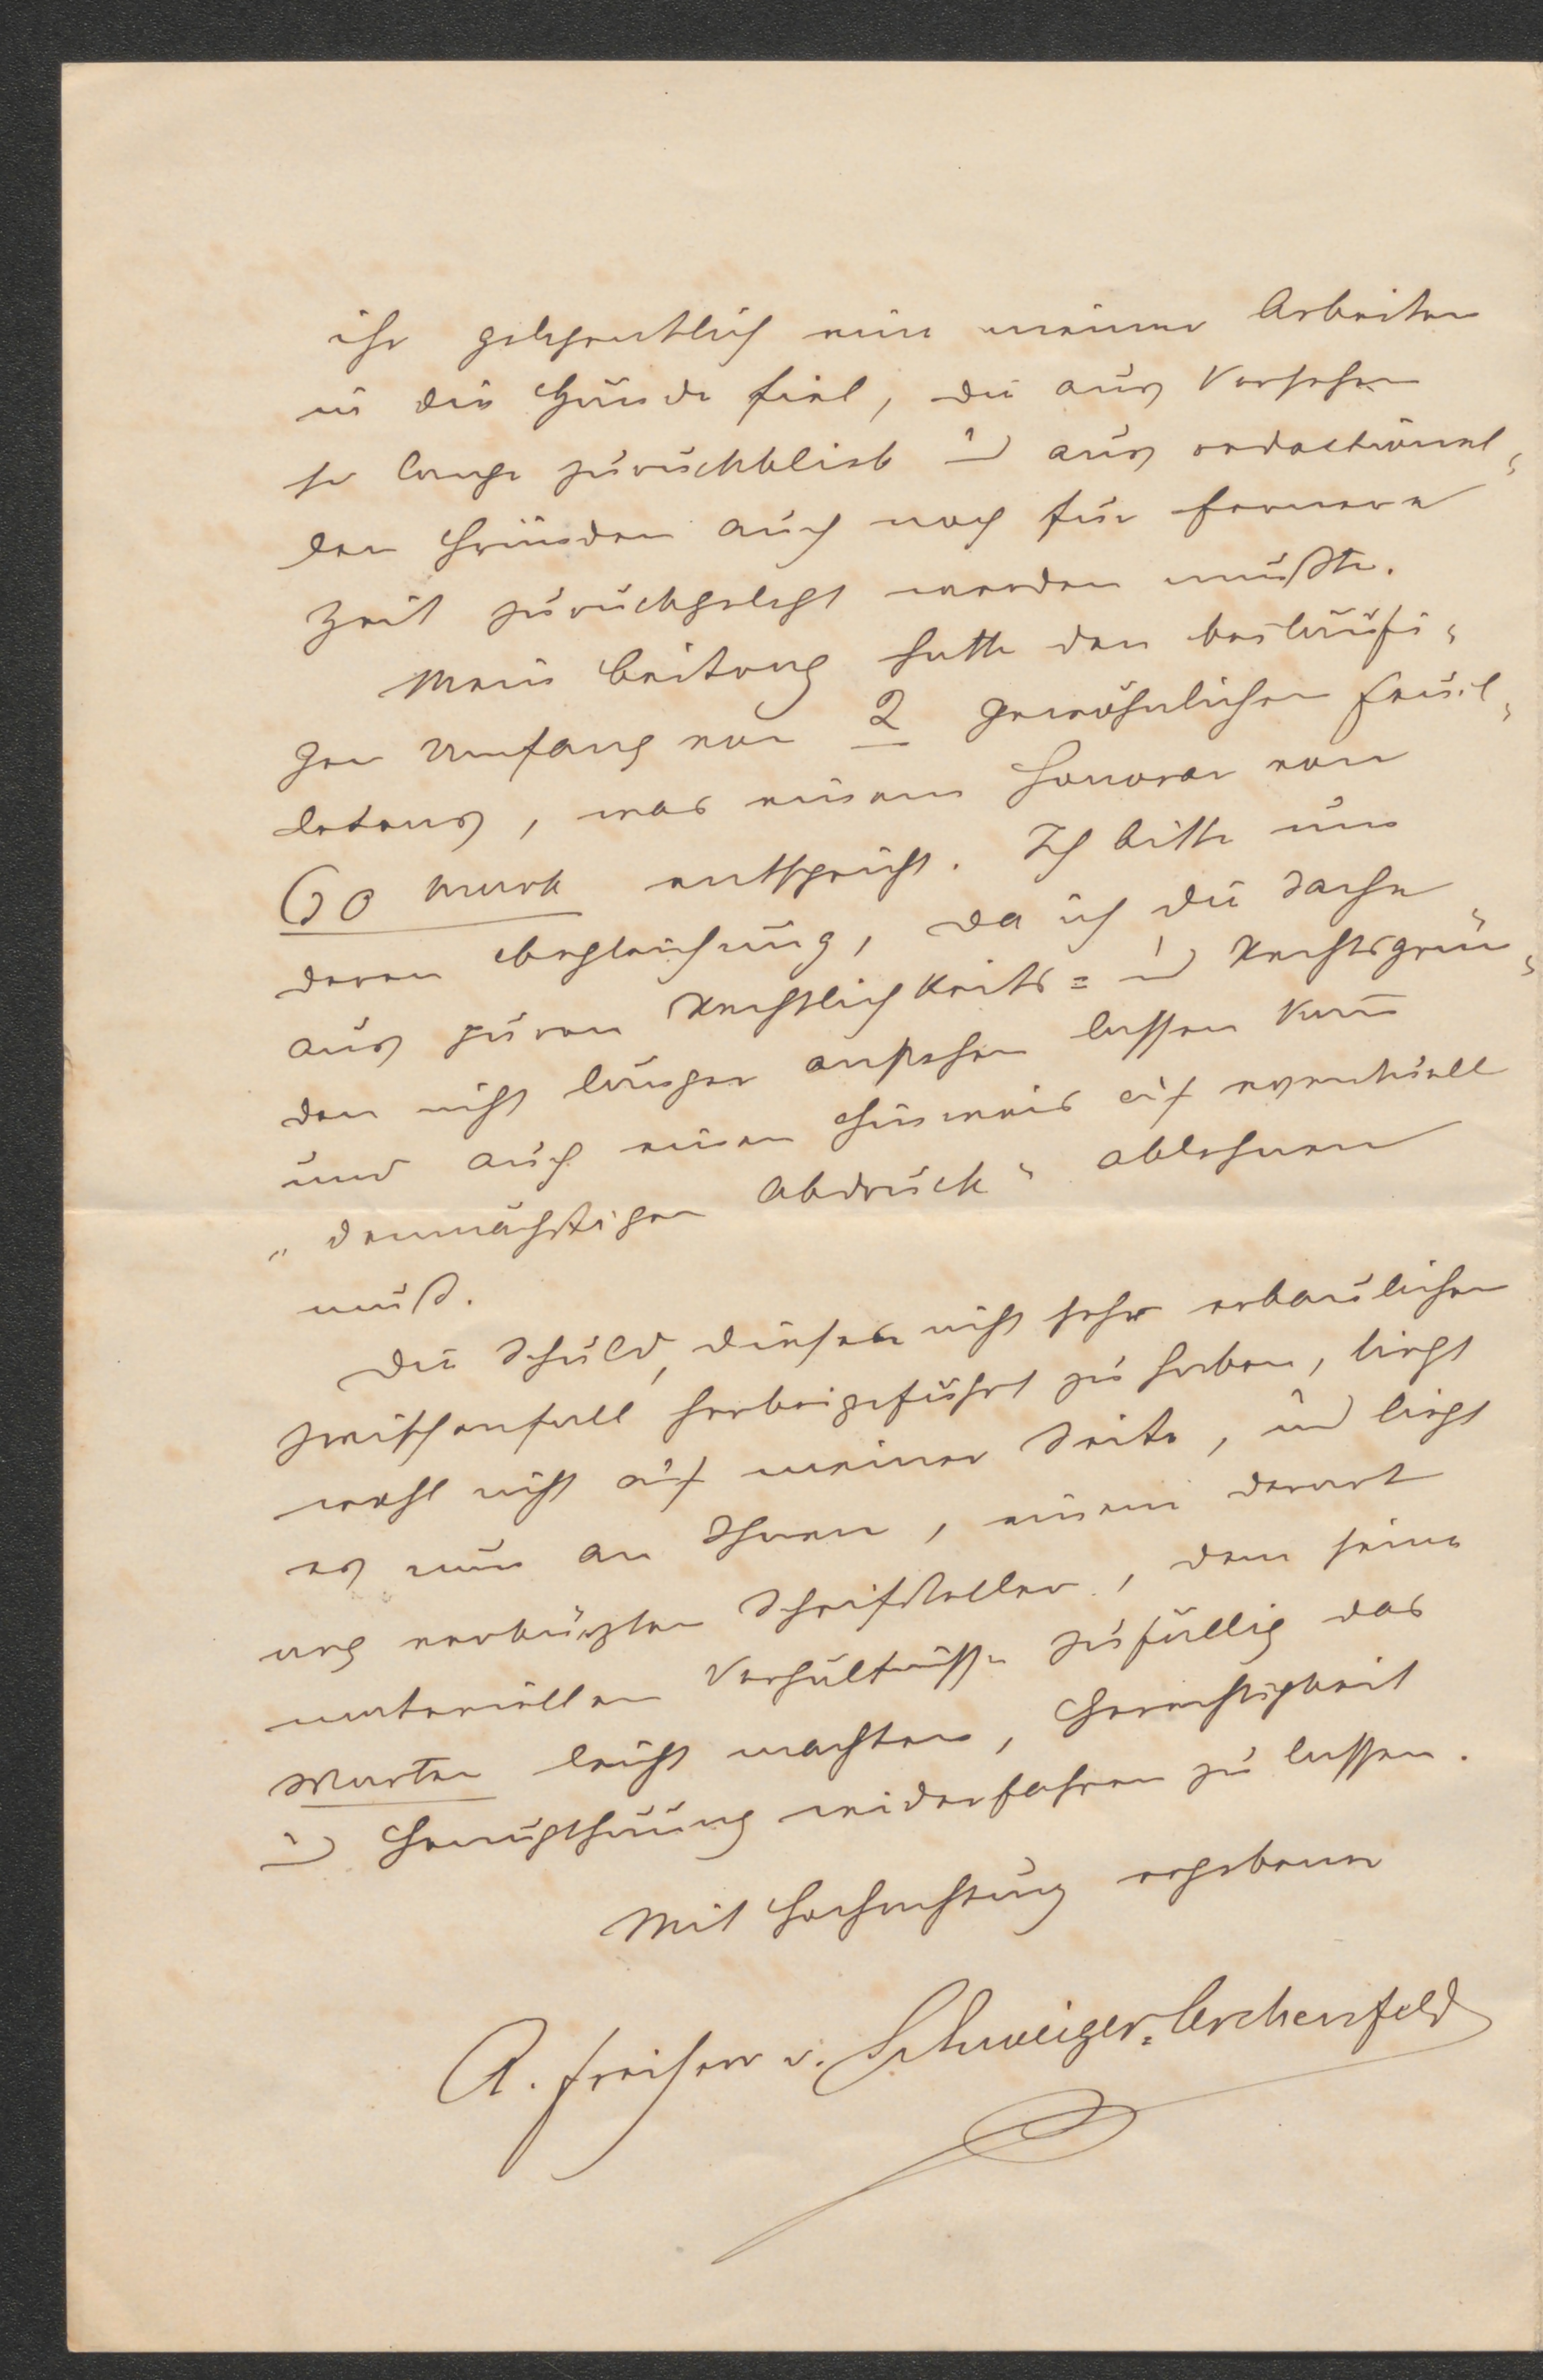 ihr gelegentlich eine meiner Arbeiten
in die Hände fiel, die aus Versehen
so lange zurückblieb und aus redactionel-
len Gründen auch noch für fernere
Zeit zurückgelegt werden mußte.
Mein Beitrag hatte den beiläufi-
gen Umfang von 2 gewöhnlichen Feuil-
letons, was einem Honorar von
60 Mark entspricht. Ich bitte um
deren Begleichung, da ich die Sache
aus puren Rechtlichkeits= und Rechtsgrün-
den nicht länger anstehen lassen kann
und auch einen Hinweis auf eventuell
„demnächstigen Abdruck" ablehnen
muß.
Die Schuld, diesen nicht sehr erbaulichen
Zwischenfall herbeigeführt zu haben, liegt
wohl nicht auf meiner Seite, und liegt
es nun an Ihnen, einem derart
arg verkürzten Schriftsteller, dem seine
materiellen Verhältnisse zufällig das
Warten leicht machten, Gerechtigkeit
und Genugthuung widerfahren zu lassen.
Mit Hochachtung ergebener
A. Freiherr v. Schweiger=Lerchenfeld